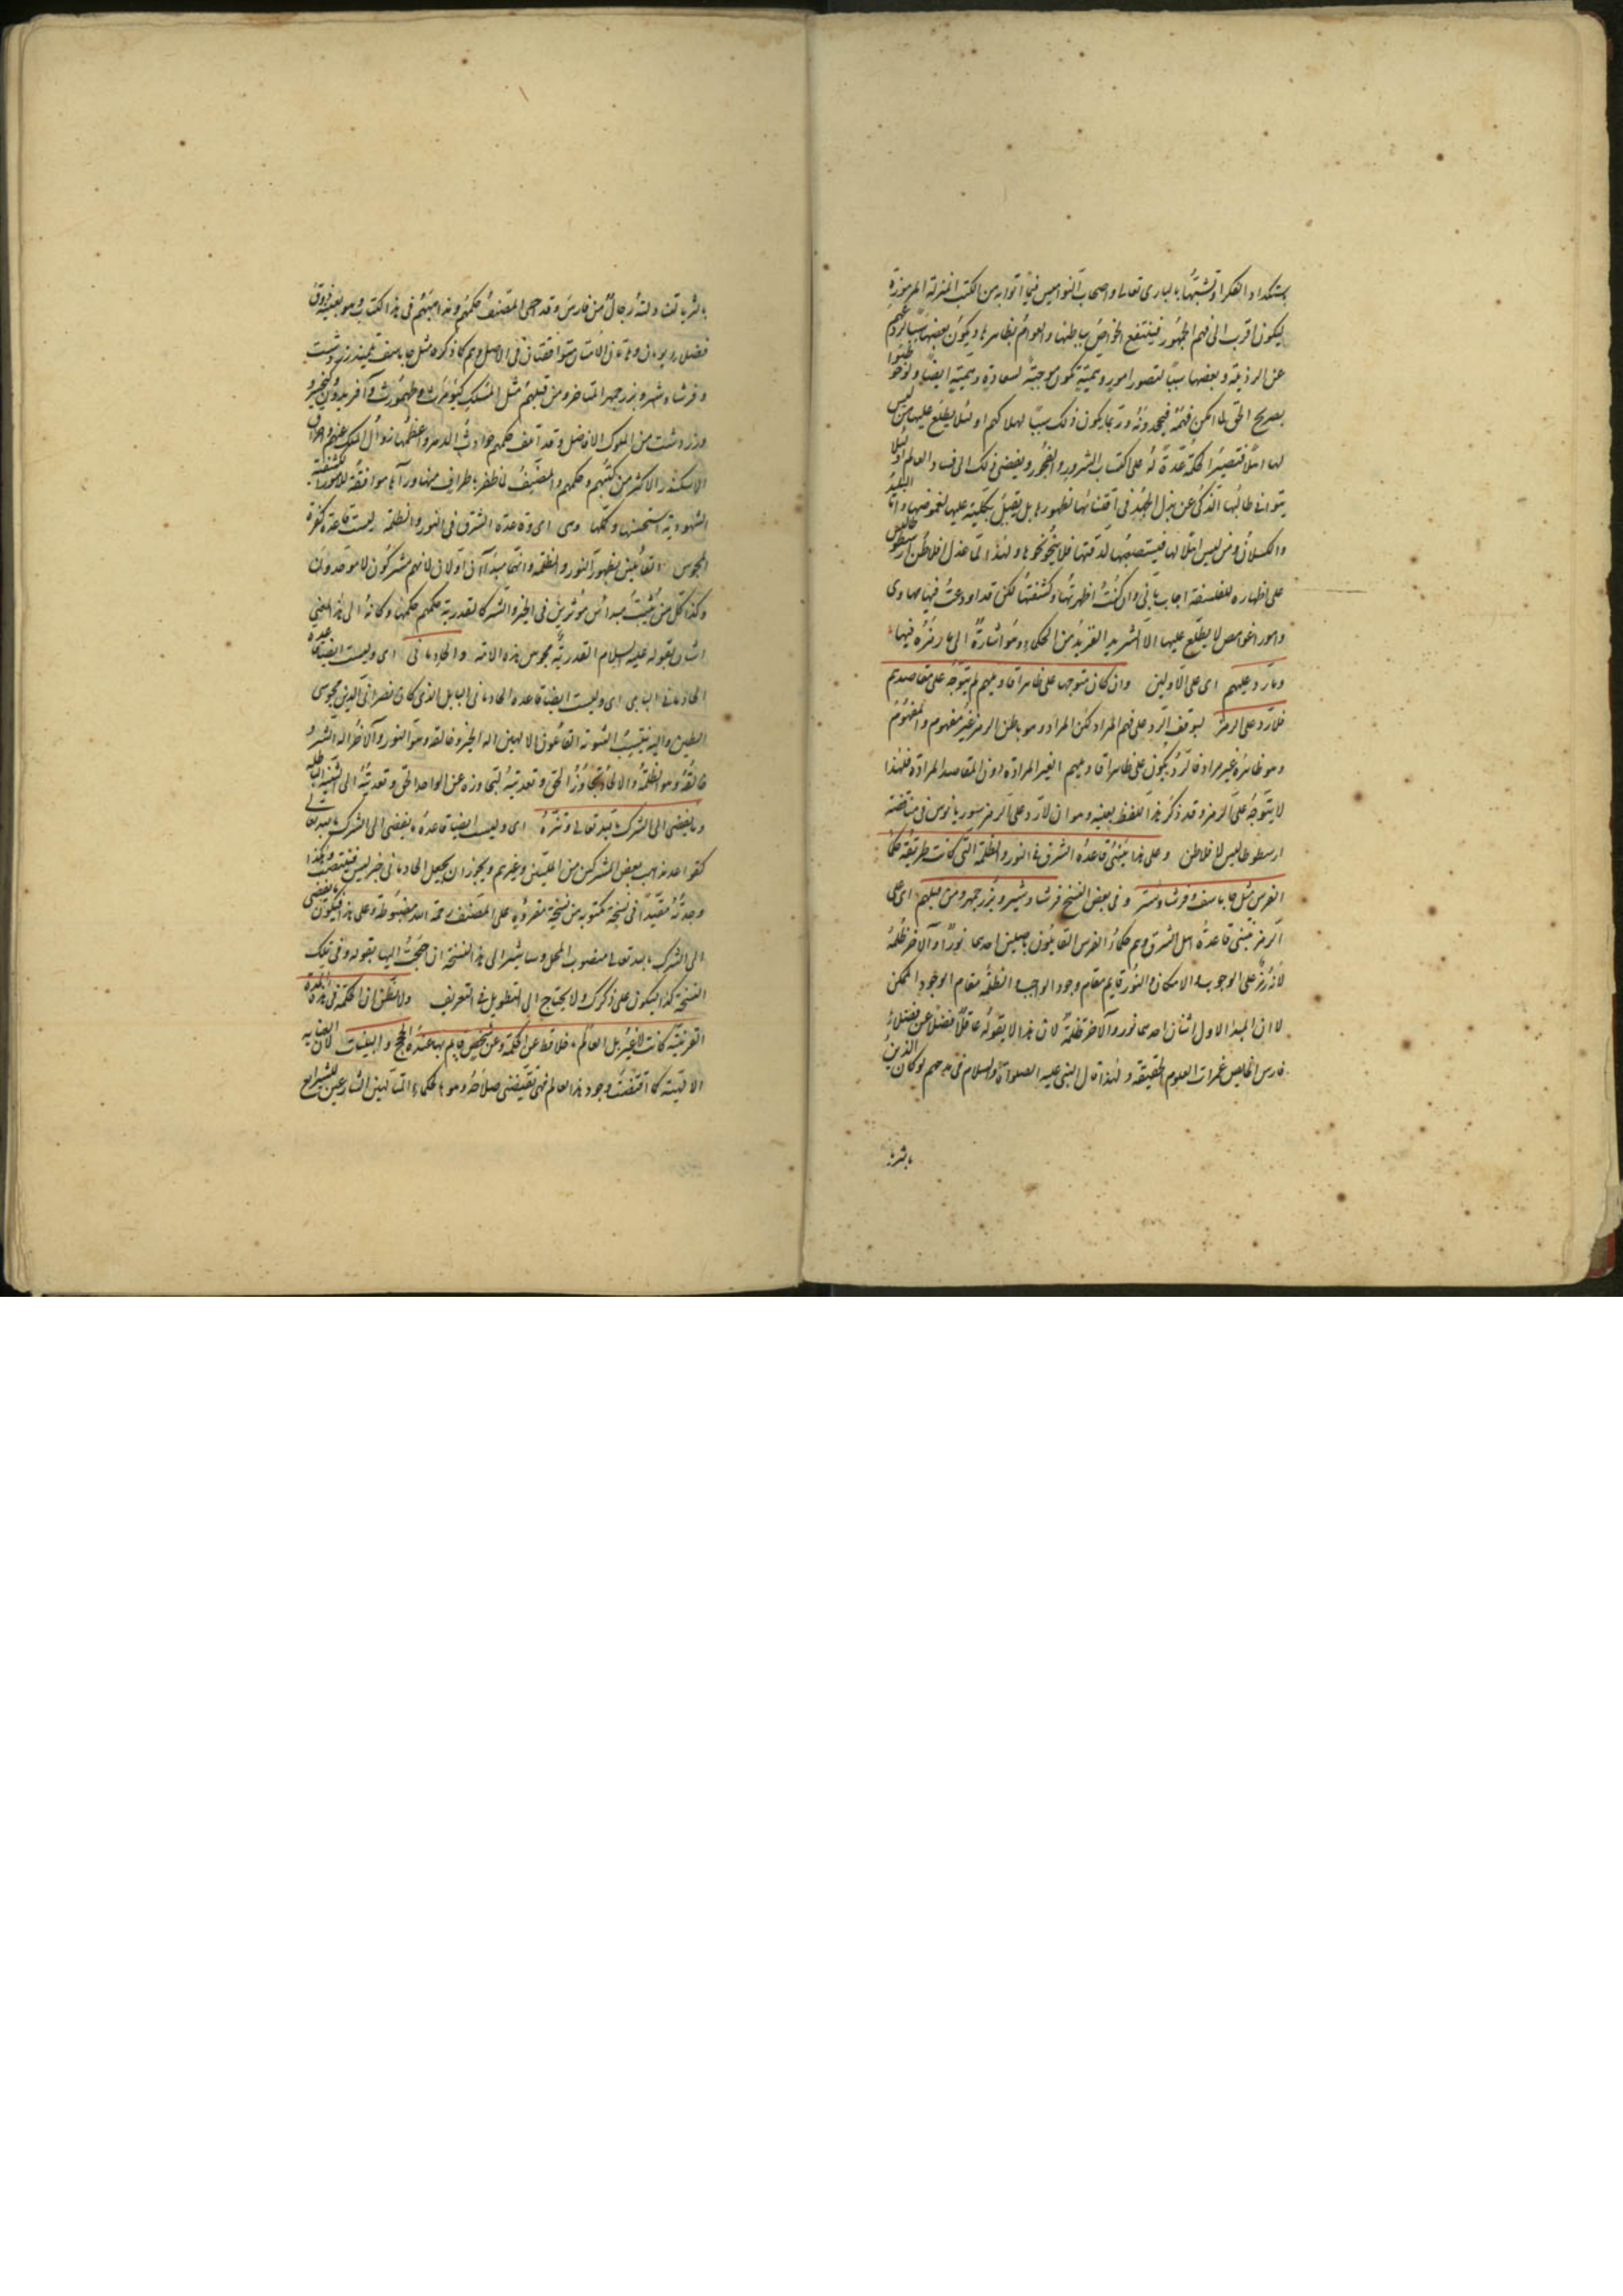 باستكداد الفكر او تشبّها بالباري تعالى واصحاب النواميس فيما اتوا به من الكتب المنزلة المرموزة
ليكون اقرب الى فهم الجمهور فينتفع الخواصّ بباطنها والعوام بظاهرها ويكون بعضها سببا لردعهم
عن الرذيلة وبعضها سببا لتصور امور وهمية تكون موجبة لسعادة وهمية ايضا ولو خوطبوا
بصريح الحق لما امكن فهمه فيجحدونه وربما يكون ذلك سببا لهلاكهم او لئلا يطلع عليها من ليس
لها اهلا فتصير الحكمة عدة له على اكتساب الشرور والفجور ويفضي ذلك الى فساد العالم او لئلا
يتوانى طالبها الذكي عن بذل الجهد في اقتنائها لظهورها بل يقبل بكليته عليها لغموضها واما البليد
والكسلان ومن ليس اهلا لها فيستصعبها لدقتها فلا ينحو نحوها ولهذا لما عذل افلاطن ارسطوطاليس
على اظهاره للفلسفة اجاب باني وان كنت اظهرتها وكشفتها لكن قد اودعت فيها مهاوى
وامورا غوامض لا يطلع عليها الا الشريد الفريد من الحكماء وهو اشارة الى ما رمزه فيها
وما رد عليهم اى على الاولين وان كان متوجها على ظاهر اقاويلهم لم يتوجه على مقاصدهم
فلا رد على الرمز لتوقف الرد على فهم المراد لكن المراد وهو باطن الرمز غير مفهوم والمفهوم
وهو ظاهره غير مراد فالرد يكون على ظاهر اقاويلهم الغير المرادة دون المقاصد المرادة فلهذا
لا يتوجه على الرمز وقد ذكر هذا اللفظ بعينه وهو ان لا رد على الرمز سوريانوس في مناقضة
ارسطوطاليس لافلاطن وعلى هذا يبتنى قاعدة الشرق في النور والظلمة التي كانت طريقة حكماء
الفرس مثل جاماسف وفرشاوشتر وفي بعض النسخ فرشادشير وبزرجمهر ومن قبلهم اى على
الرمز يبتنى قاعدة اهل الشرق وهم حكماء الفرس القائلون باصلين احدهما نور والاخر ظلمة
لانه رمز على الوجوب والامكان فالنور قايم مقام وجود الواجب والظلمة مقام الوجود الممكن
لا ان المبدا الاول اثنان احدهما نور والاخر ظلمة لان هذا لا يقوله عاقل فضلا عن فضلاء
فارس الخايضين غمرات العلوم الحقيقة ولهذا قال النبي عليه الصلوة والسلام في مدحهم لو كان الدين
بالثريا
بالثريا لتناولته رجال من فارس وقد احيى المصنف حكمتهم ومذاهبهم في هذا الكتاب وهو بعينه ذوق
فضلاء يونان وهاتان الامتان متوافقتان في الاصل وهم كما ذكره مثل جاماسف تلميذ زردشت
وفرشادشير وبزرجمهر المتاخر ومن قبلهم مثل الملك كيومرث وطهمورث وافريدون وكيخسرو
وزردشت من الملوك الافاضل وقد اتلف حكمهم حوادث الدهر واعظمها زوال الملك عنهم واحراق
الاسكندر الاكثر من كتبهم وحكمهم والمصنف لما ظفر باطراف منها ورآها موافقة للامور الكشفية
الشهودية استحسنها وكملها وهى اى وقاعدة الشرق في النور والظلمة ليست قاعدة كفرة
المجوس القائلين بظاهر النور والظلمة وانهما مبدآن اولان لانهم مشركون لا موحدون
وكذا كل من يثبت مبدأين مؤثرين في الخير والشر كالقدرية حكمهم حكمها وكانه الى هذا المعنى
اشار بقوله عليه السلام القدرية مجوس هذه الامة والحاد مانى اى وليست ايضا قاعدة
الحاد مانى البابلى اى وليست ايضا قاعدة الحاد مانى البابلى الذى كان نصرانى الدين مجوسى
الطين واليه ينسب الثنوية القائلون بالالهين اله الخير وخالقه وهو النور والاخر اله الشر و
خالقه وهو الظلمة والالحاد تجاوز الحق وتعديته لتجاوزه عن الواحد الحق وتعديته الى اثنين الباطل
وما يفضى الى الشرك بالله تعالى وتنزه اى وليست ايضا قاعدة ما يفضى الى الشرك بالله تعالى
كقواعد مذاهب بعض المشركين من المليين وغيرهم ويجوز ان يجعل الحاد مانى خبر ليس فينتصب وكذا
وجدته مقيدا في نسخة مكتوبة من نسخة مقروءة على المصنف رحمة الله مضبوطة وعلى هذا فيكون ما يفضى
الى الشرك بالله تعالى منصوب المحل وساشير الى هذه النسخة ان احتجت اليها بقولى وفي تلك
النسخة كذا ليكون على ذكرك ولا يحتاج الى التطويل في التعريف ولا تظن ان الحكمة في هذه المدة
القريبة كانت لا غير بل العالم ما خلا قط عن الحكمة وعن شخص قايم بها عنده الحجج والبينات لان العناية
الالهية كما اقتضت وجود هذا العالم فهى تقتضى صلاحه وهو بالحكماء المتألهين الشارعين للشرايع